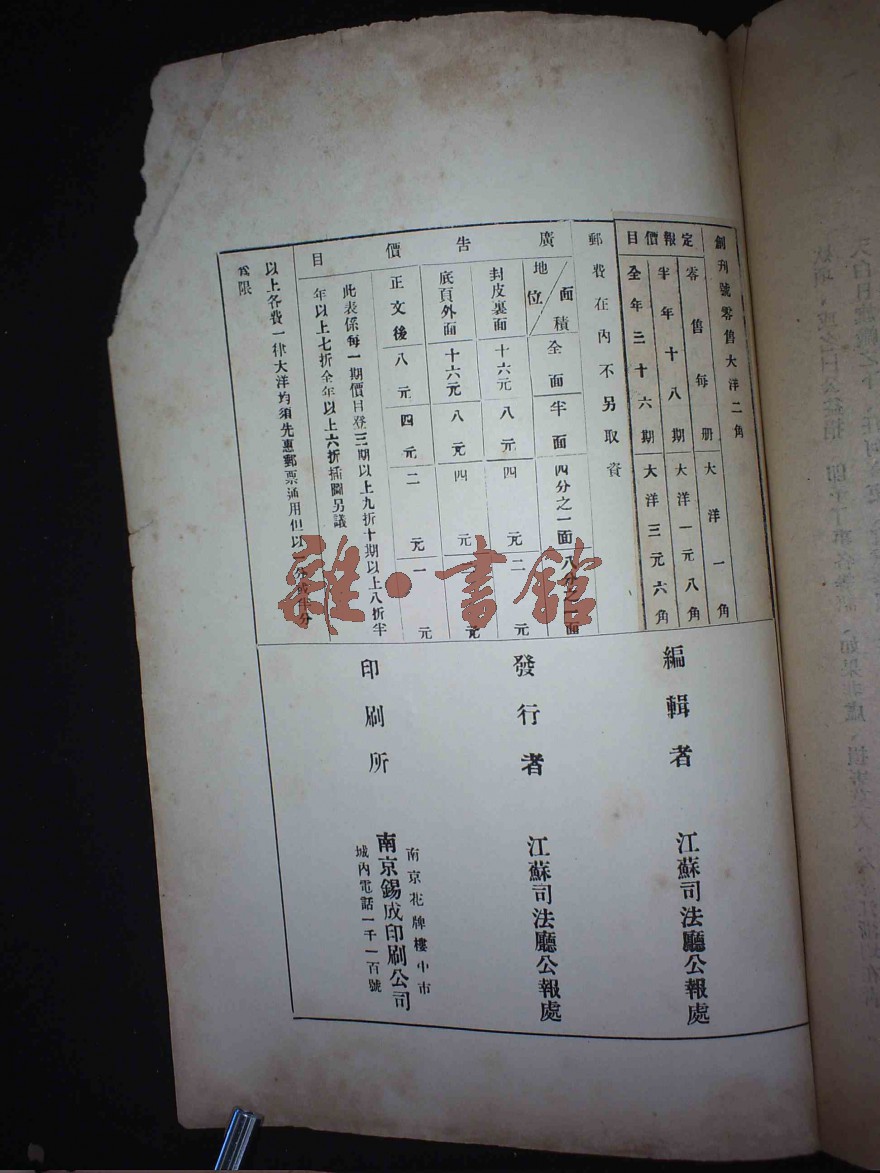 創刊號零售大洋二角
定報價目
零售每册大洋一角
半年十八期大洋一元八角
全年三十六期大洋三元六角
郵費在內不另取資
廣告價目
面積 全面 半面 四分之一面 八分之一面
地位
封皮裏面 十六元 八元 四元 二元
底頁外面 十六元 八元 四元 二元
正文後 八元 四元 二元 一元
此表係每一期價目登三期以上九折十期以上八折半
年以上七折全年以上六折插圖另議
以上各費一律大洋均須先惠郵票通用但以一分或半分
爲限
編輯者 江蘇司法廳公報處
發行者 江蘇司法廳公報處
印刷所
南京花牌樓中市
南京錫成印刷公司
城內電話一千一百號
雜·書館